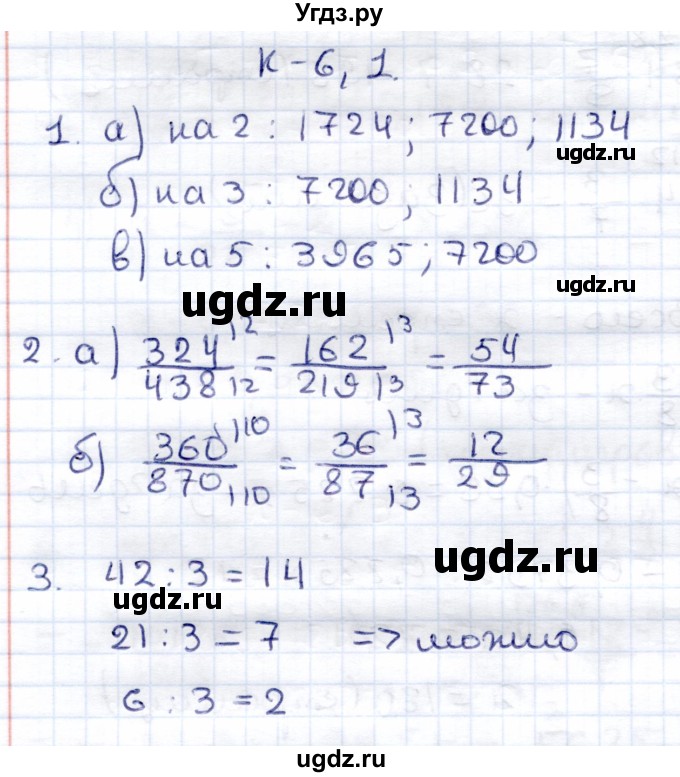 Угдз.ру
К-6, 1.
1. а) на 2 : 1724 ; 7200 ; 1134
ugdz.ru
б) на 3 : 7200 ; 1134
в) на 5 : 3965 ; 7200
ugdz.ru
2. а) 324/438 |2 |2 = 162/219 )3 )3 = 54/73
б) 360/870 )10 )10 = 36/87 )3 )3 = 12/29
ugdz.ru
3. 42 : 3 = 14
ugdz.ru
21 : 3 = 7 => можно
6 : 3 = 2
ugdz.ru